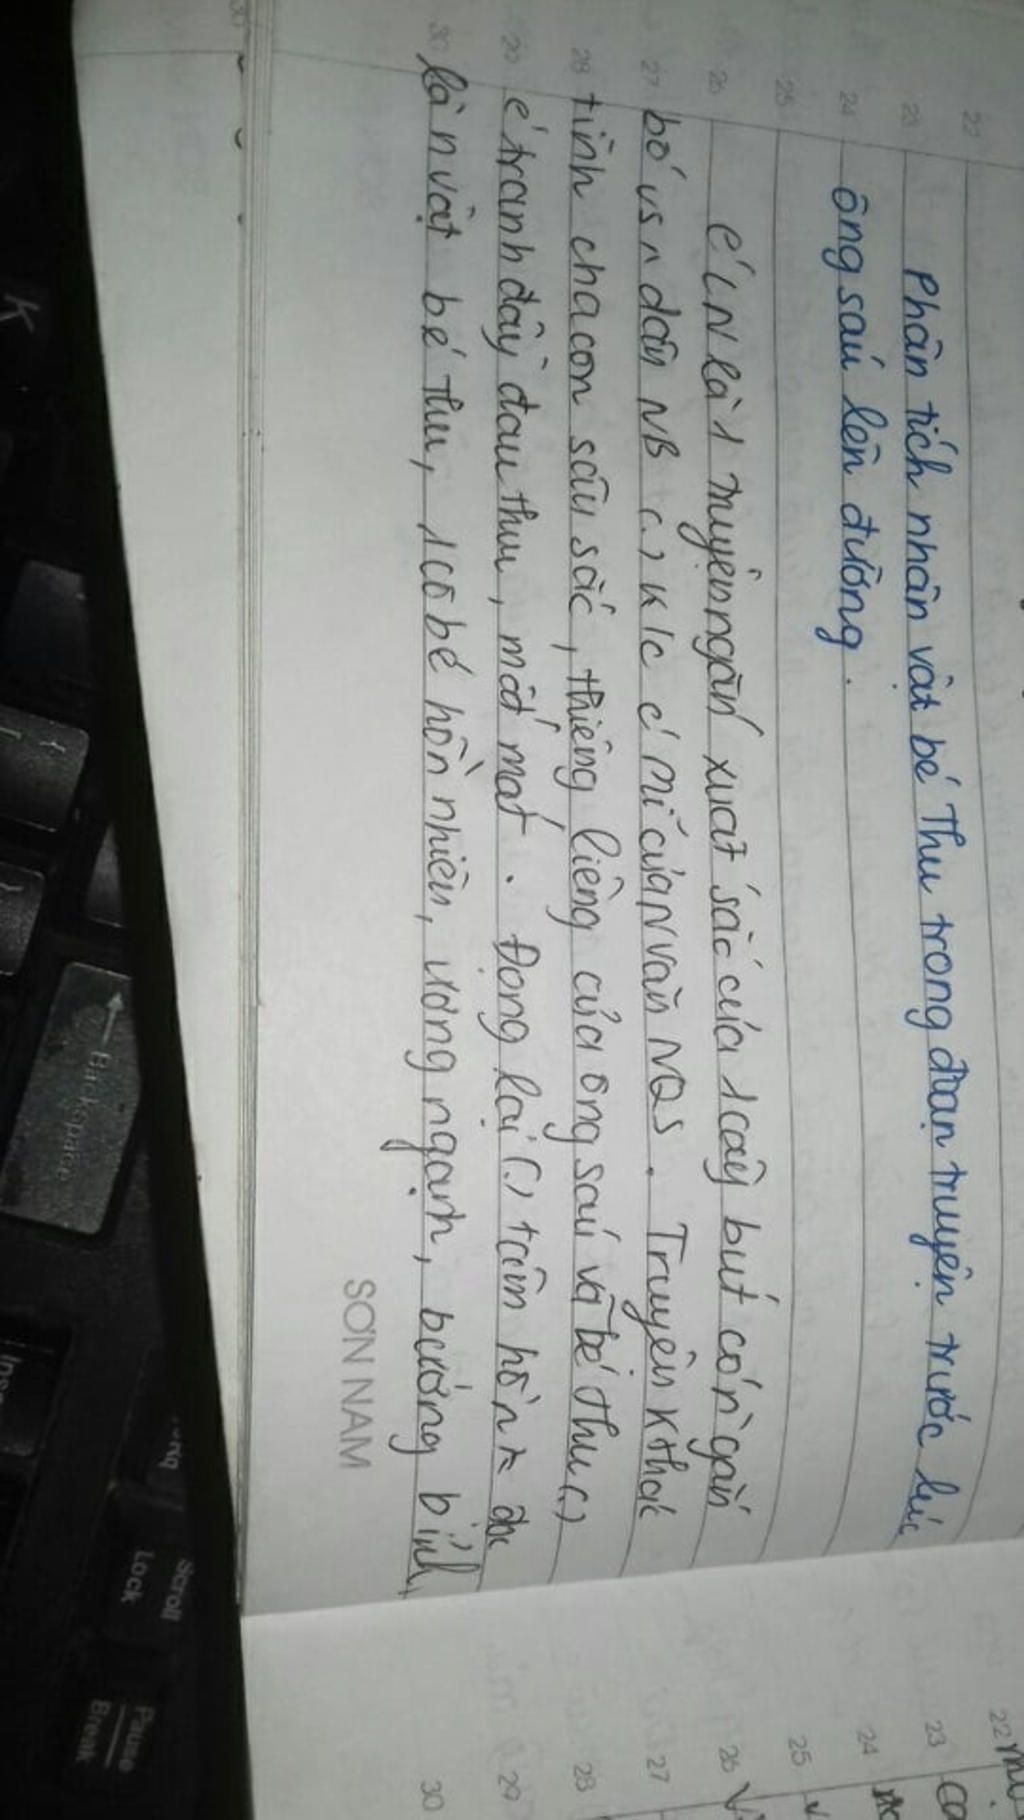 Phân tích nhân vật bé Thu trong đoạn truyện trước lúc
ông sáu lên đường.
CLN là 1 truyện ngắn xuất sắc của 1 cây bút có n` gắn
bó vs n dân NB (.) k/c c' mĩ của N văn NQS. Truyện k thác
tình cha con sâu sắc, thiêng liêng của ông sáu và bé Thu (.)
c' tranh đầy đau thươ, mất mát. Đọng lại (.) tâm hồn đọc
là n vật bé Thu, 1 cô bé hồn nhiên, ương ngạnh, bướng bỉnh,
SƠN NAM
22
23
24
25
26
27
28
29
30
22
23
24
25
26
27
28
29
30
K
Backspace
Scroll
Lock
Pause
Break
Ins